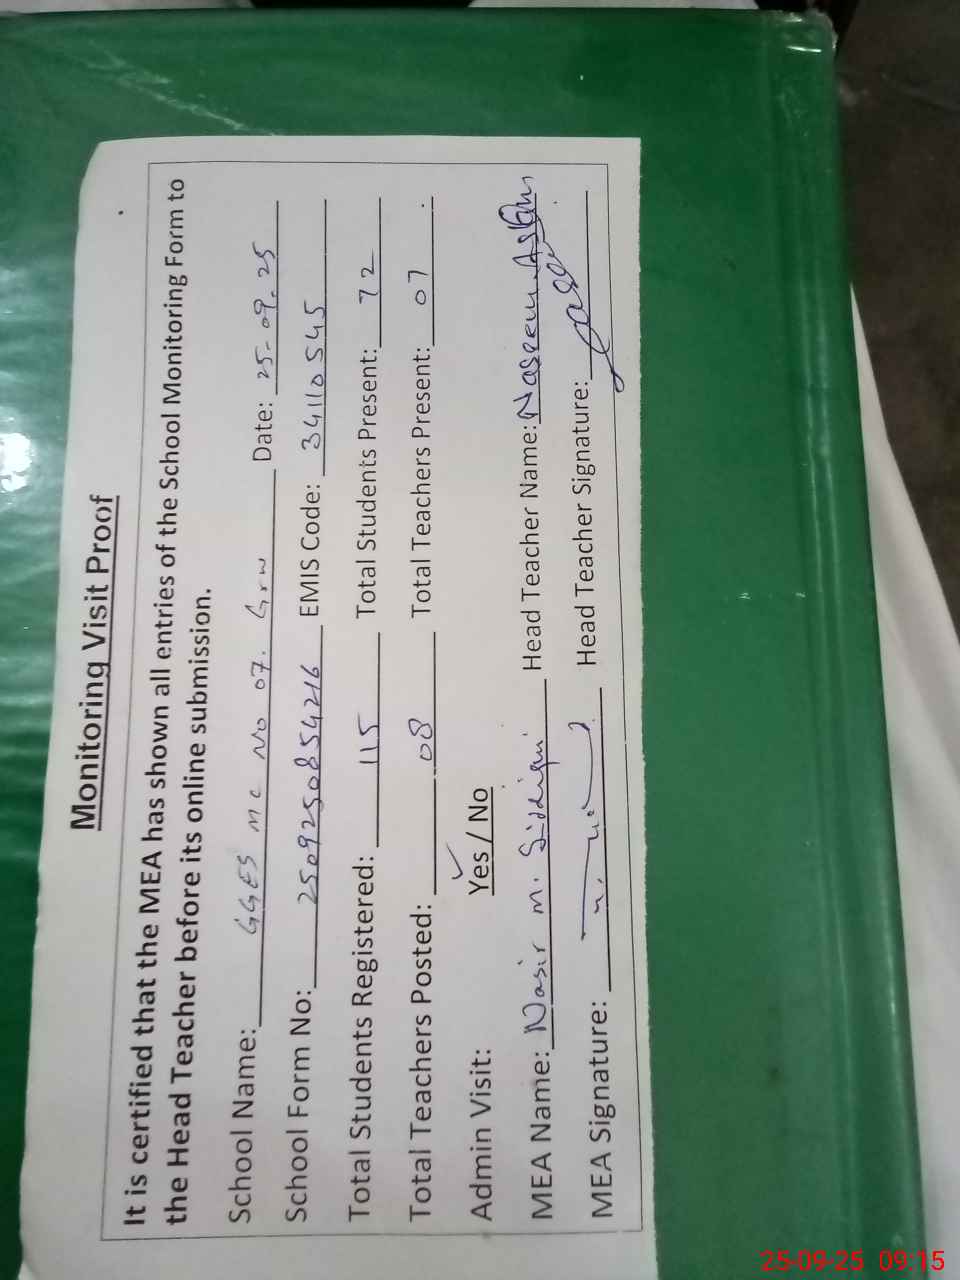 Monitoring Visit Proof
It is certified that the MEA has shown all entries of the School Monitoring Form to
the Head Teacher before its online submission.
School Name: GGES MC No 07. Grw Date: 25-09-25
School Form No: 2509250854216 EMIS Code: 34110545
Total Students Registered: 115 Total Students Present: 72
Total Teachers Posted: 08 Total Teachers Present: 07
Admin Visit: Yes / No
MEA Name: Nasir M. Siddiqui Head Teacher Name: Naseem
MEA Signature: Head Teacher Signature:
25-09-25 09:15